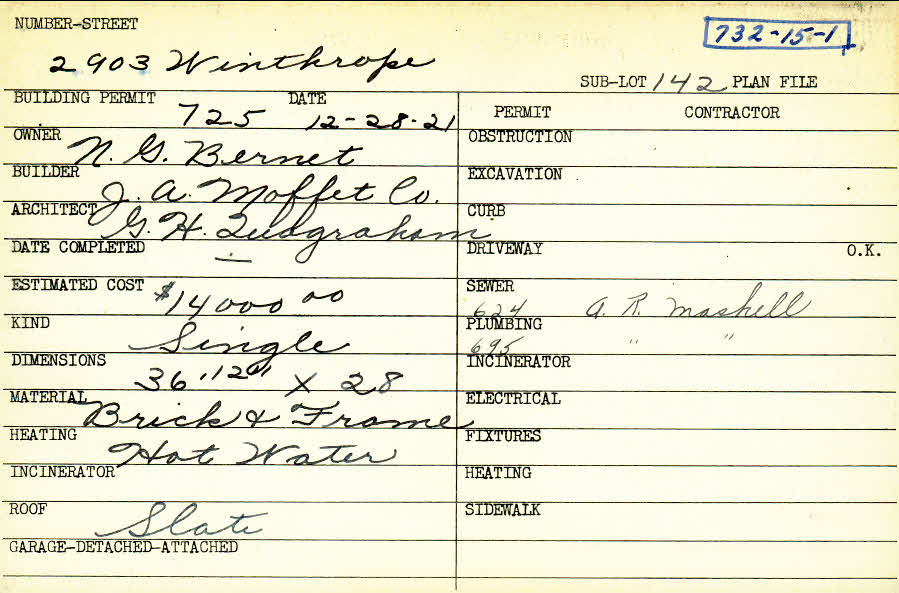 NUMBER-STREET
732-15-1
2903 Winthrope
SUB-LOT 142 PLAN FILE
BUILDING PERMIT 725 DATE 12-28-21
PERMIT CONTRACTOR
OWNER N. G. Bernet
OBSTRUCTION
BUILDER J. A. Moffet Co.
EXCAVATION
ARCHITECT G. H.
CURB
DATE COMPLETED —
DRIVEWAY O.K.
ESTIMATED COST $14000 00
SEWER 624 A. R. Maskell
KIND Single
PLUMBING 695 " "
DIMENSIONS X 28
INCINERATOR
MATERIAL Brick & Frame
ELECTRICAL
HEATING Hot Water
FIXTURES
INCINERATOR
HEATING
ROOF Slate
SIDEWALK
GARAGE-DETACHED-ATTACHED